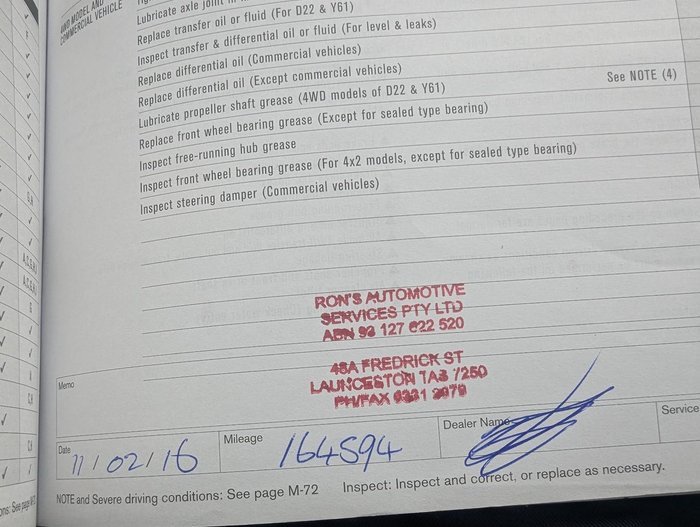 4WD MODEL AND
COMMERCIAL VEHICLE
Lubricate axle joint
Replace transfer oil or fluid (For D22 & Y61)
Inspect transfer & differential oil or fluid (For level & leaks)
Replace differential oil (Commercial vehicles)
Replace differential oil (Except commercial vehicles)
Lubricate propeller shaft grease (4WD models of D22 & Y61)
Replace front wheel bearing grease (Except for sealed type bearing) See NOTE (4)
Inspect free-running hub grease
Inspect front wheel bearing grease (For 4x2 models, except for sealed type bearing)
Inspect steering damper (Commercial vehicles)
RON'S AUTOMOTIVE
SERVICES PTY LTD
ABN 93 127 622 520
48A FREDRICK ST
LAUNCESTON TAS 7250
PH/FAX 6331 2979
Memo
Date 11/02/16 Mileage 164594 Dealer Name Service
NOTE and Severe driving conditions: See page M-72 Inspect: Inspect and correct, or replace as necessary.